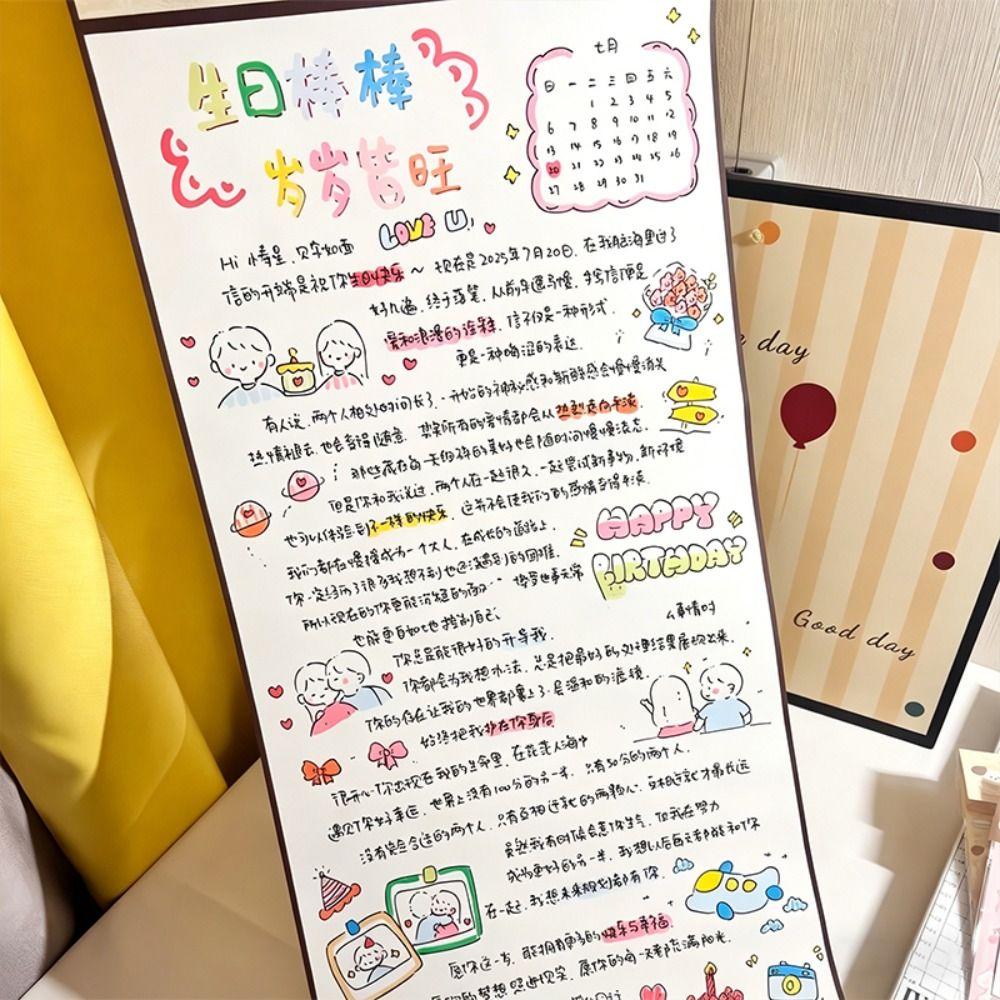 生日棒棒
岁岁皆旺
七月
日 一 二 三 四 五 六
1 2 3 4 5
6 7 8 9 10 11 12
13 14 15 16 17 18 19
20 21 22 23 24 25 26
27 28 29 30 31
LOVE U
Hi 情星，见字如面
信的开端是祝你生日快乐～ 现在是2025年7月20日，在我脑海里过了
好几遍，终于落笔，从前车遥马慢，书信便是
爱和浪漫的诠释，信不仅是一种形式，
更是一种晦涩的表达，
有人说，两个人相处的时间长了，一开始的神秘感和新鲜感会慢慢消失
热情褪去，也会变得随意，其实所有的爱情都会从热烈走向平淡
那些藏在每一天细碎的美好也会随时间慢慢流态
但是你和我说过，两个人在一起很久，一起尝试新事物，新环境
也可以体验到不一样的快乐，这并不会使我们的感情变得平淡
我们都在慢慢成为一个大人，在成长的道路上，
你一定经历了很多我想不到也还没遇到的困难，
所以现在的你更能沉稳的面对
也能更自如地控制自己
HAPPY
BIRTHDAY
你总是能很好的开导我，
你都会为我想办法，总是把最好的处理结果展现出来，
你的存在让我的世界都蒙上了一层温和的滤镜，
始终把我护在你身后
很开心你出现在我的生命里，在茫茫人海中
遇见你好幸运，世界上没有100分的另一半，只有50分的两个人，
没有完全合适的两个人，只有互相迁就的两颗心，
虽然我有时候会惹你生气，但我在努力
成为更好的另一半，我想以后每天都能和你
在一起，我想未来规划都有你，
愿你这一岁，能拥有更多的快乐与幸福
愿你的每一天都充满阳光，
day
Good day